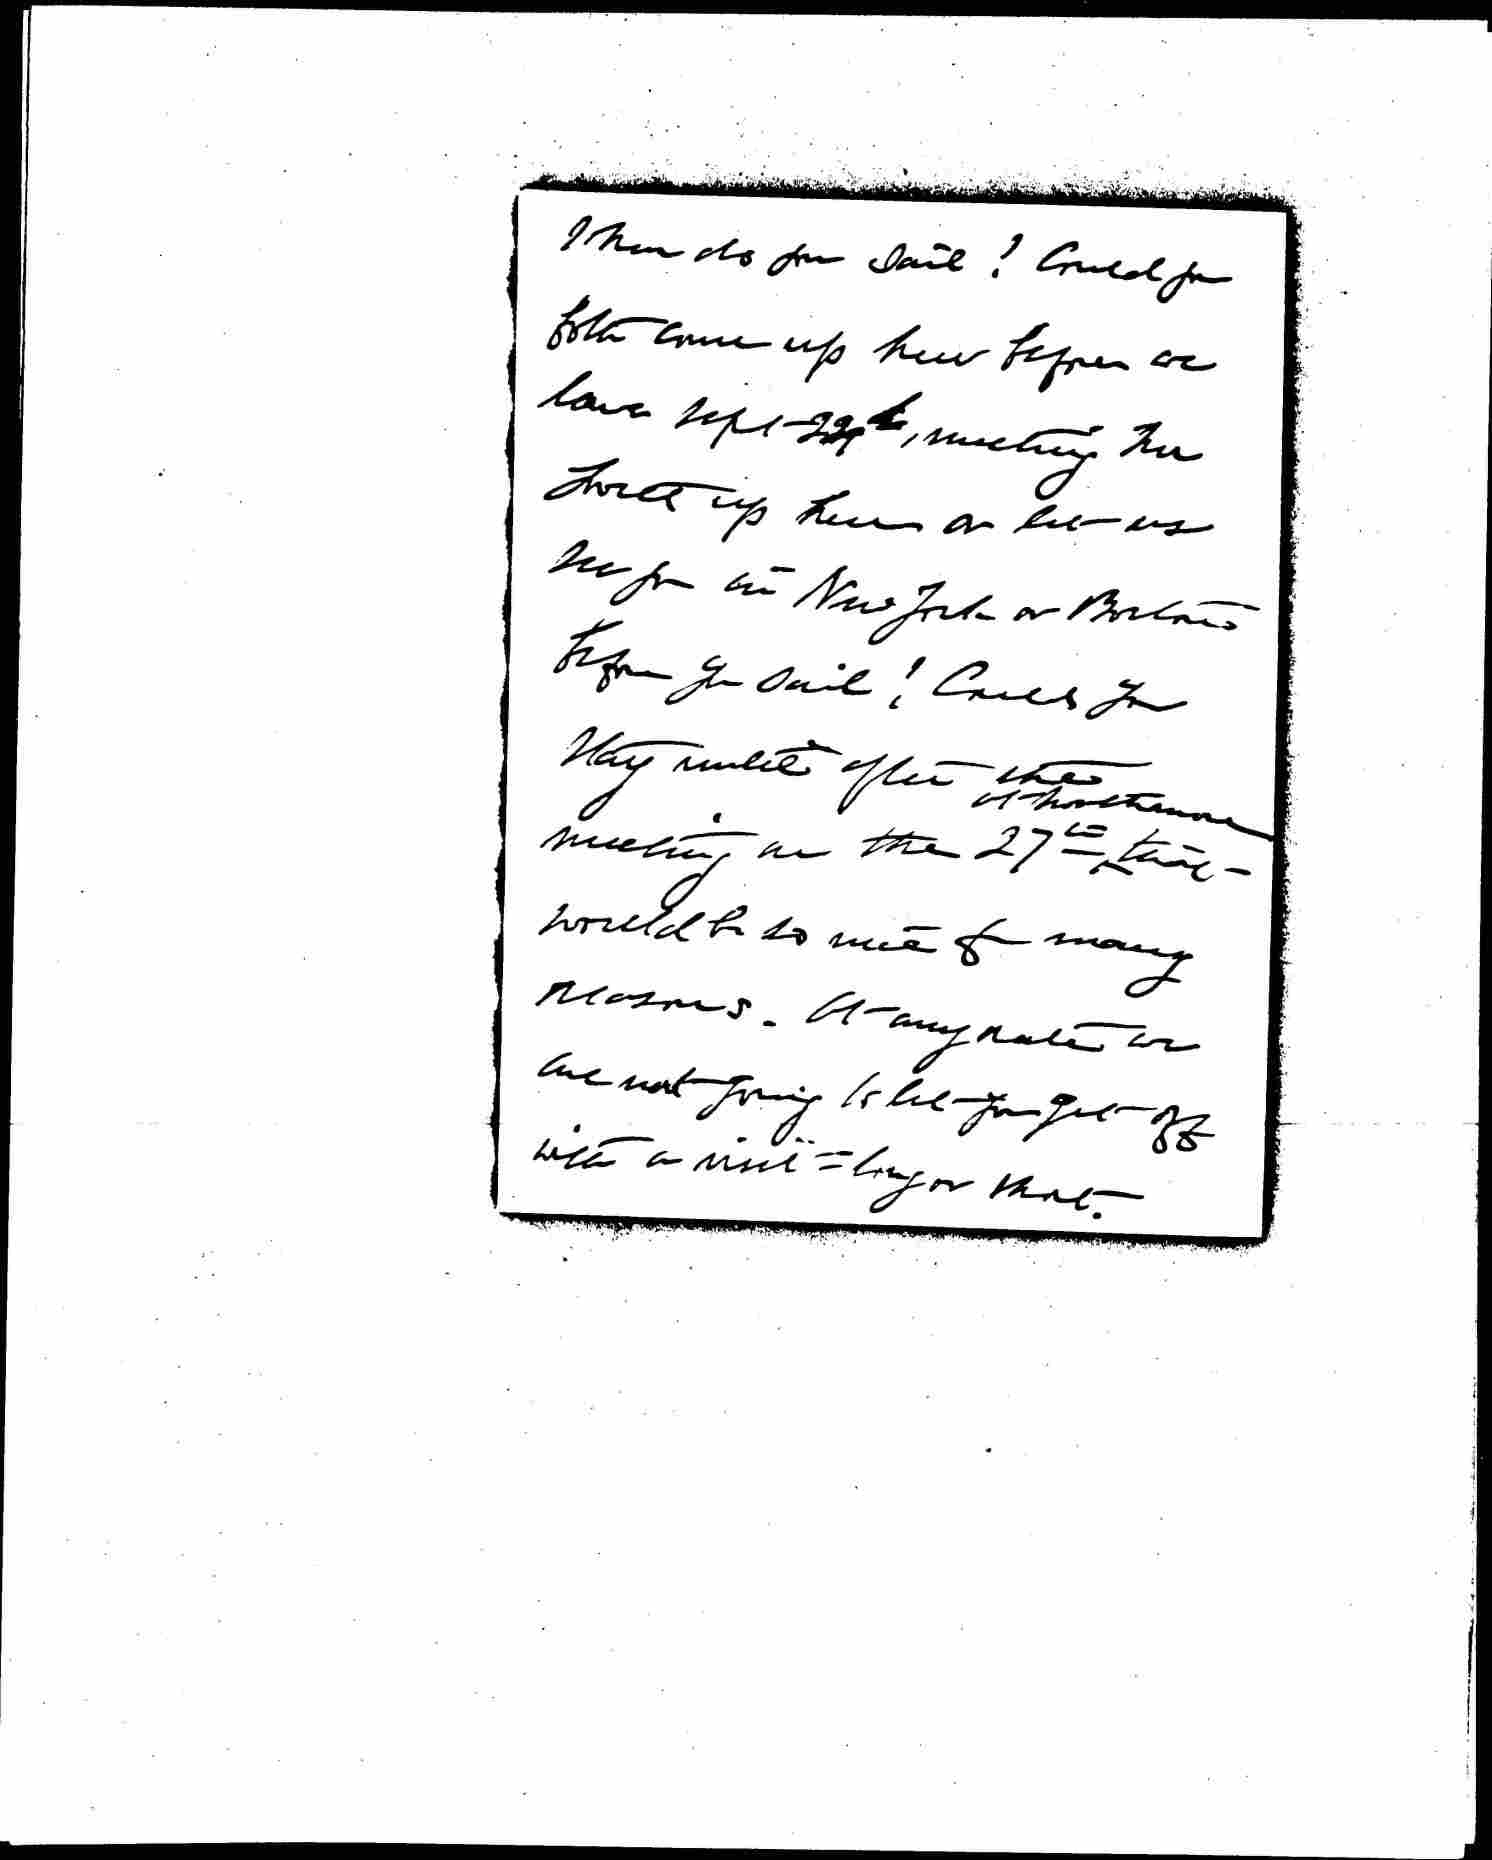 When do you sail? Could you
both come up here before we
leave Sept 29th, meeting the
up here or let us
see you in New York or Boston
before you sail? Could you
stay until after the
at Northampton
meeting on the 27th
would be so nice for many
reasons. At any rate we
are not going to let you get off
with a visit = long or short.